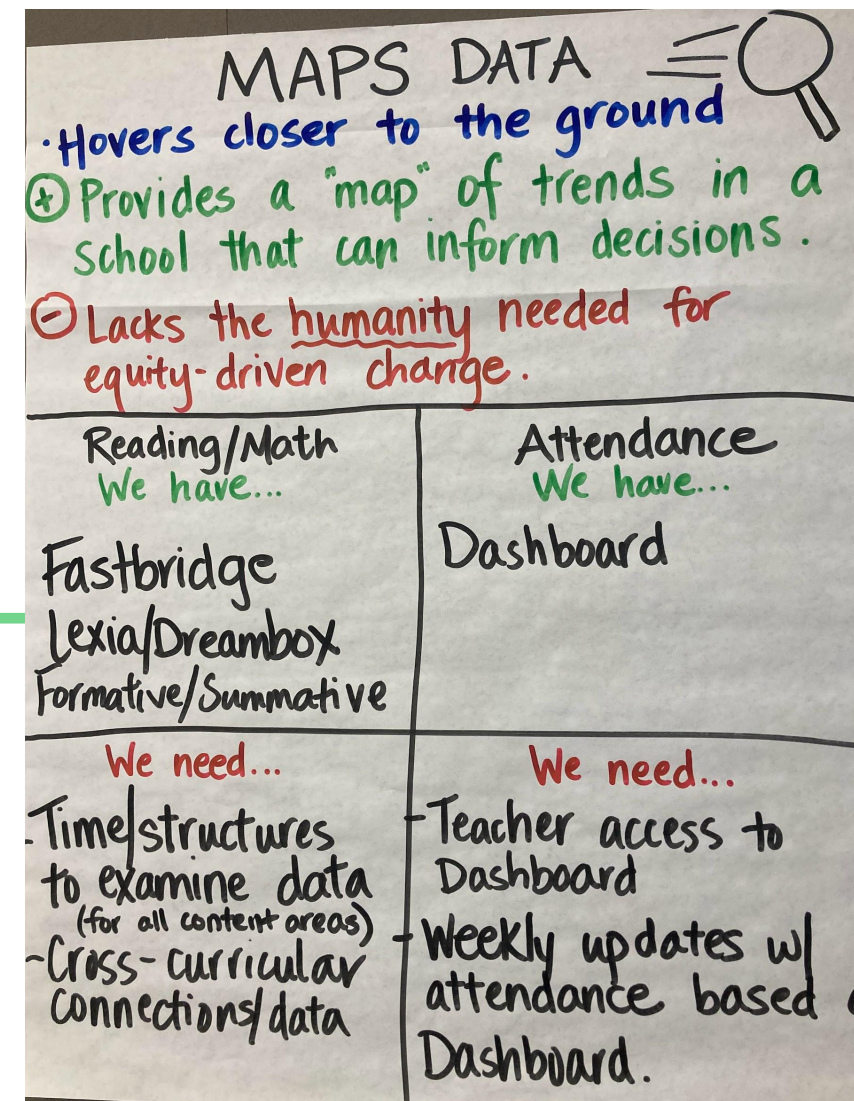 MAPS DATA
·Hovers closer to the ground
+ Provides a "map" of trends in a
school that can inform decisions.
- Lacks the humanity needed for
equity-driven change.
Reading/Math
We have...
Fastbridge
Lexia/Dreambox
Formative/Summative
Attendance
We have...
Dashboard
We need...
-Time/structures
to examine data
(for all content areas)
-Cross-curricular
connections/data
We need...
-Teacher access to
Dashboard
-Weekly updates w/
attendance based
Dashboard.